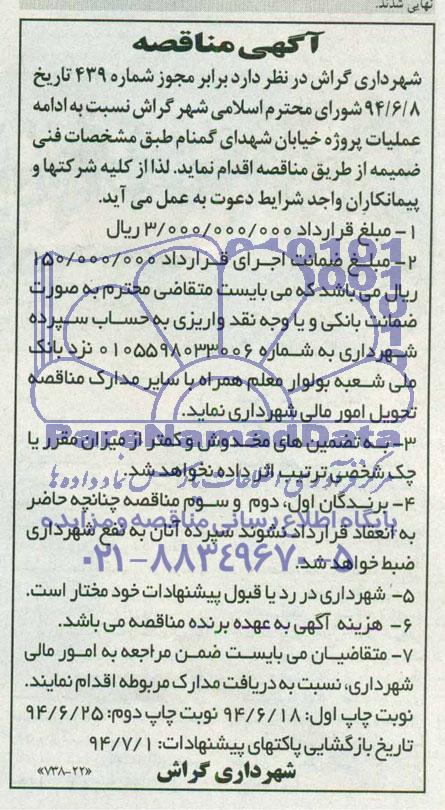 نهایی شدند.
آگهی مناقصه
شهرداری گراش در نظر دارد برابر مجوز شماره ۴۳۹ تاریخ
۹۴/۶/۸ شورای محترم اسلامی شهر گراش نسبت به ادامه
عملیات پروژه خیابان شهدای گمنام طبق مشخصات فنی
ضمیمه از طریق مناقصه اقدام نماید. لذا از کلیه شرکتها و
پیمانکاران واجد شرایط دعوت به عمل می آید.
۱- مبلغ قرارداد ۳/۰۰۰/۰۰۰/۰۰۰ ریال
۲- مبلغ ضمانت اجرای قرارداد ۱۵۰/۰۰۰/۰۰۰
ریال می باشد که می بایست متقاضی محترم به صورت
ضمانت بانکی و یا وجه نقد واریزی به حساب سپرده
شهرداری به شماره ۰۱۰۵۵۹۸۰۳۳۰۰۶ نزد بانک
ملی شعبه بولوار معلم همراه با سایر مدارک مناقصه
تحویل امور مالی شهرداری نماید.
ParsNamadData
۳- به تضمین های مخدوش و کمتر از میزان مقرر یا
چک شخصی ترتیب اثر داده نخواهد شد.
۴- برندگان اول، دوم و سوم مناقصه چنانچه حاضر
پایگاه اطلاع رسانی مناقصه و مزایده
به انعقاد قرارداد نشوند سپرده آنان به نفع شهرداری
ضبط خواهد شد.
۰۲۱-۸۸۳۴۹۶۷۰-۵
۵- شهرداری در رد یا قبول پیشنهادات خود مختار است.
۶- هزینه آگهی به عهده برنده مناقصه می باشد.
۷- متقاضیان می بایست ضمن مراجعه به امور مالی
شهرداری، نسبت به دریافت مدارک مربوطه اقدام نمایند.
نوبت چاپ اول: ۹۴/۶/۱۸ نوبت چاپ دوم: ۹۴/۶/۲۵
تاریخ بازگشایی پاکتهای پیشنهادات: ۹۴/۷/۱
شهرداری گراش
«۷۳۸-۲۲»